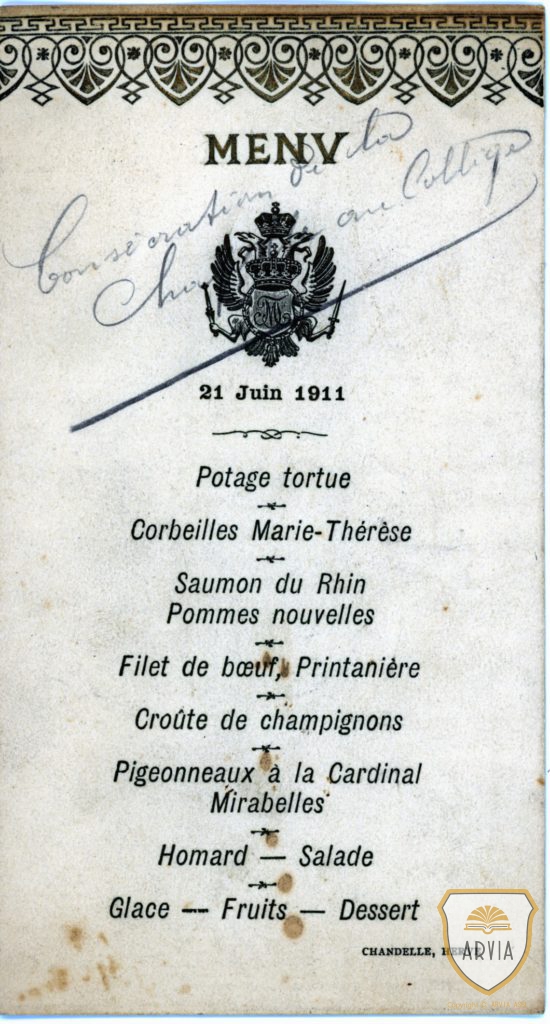 MENV
Consécration de la
au Collège
21 Juin 1911
Potage tortue
Corbeilles Marie-Thérèse
Saumon du Rhin
Pommes nouvelles
Filet de bœuf, Printanière
Croûte de champignons
Pigeonneaux à la Cardinal
Mirabelles
Homard — Salade
Glace — Fruits — Dessert
CHANDELLE,
ARVIA